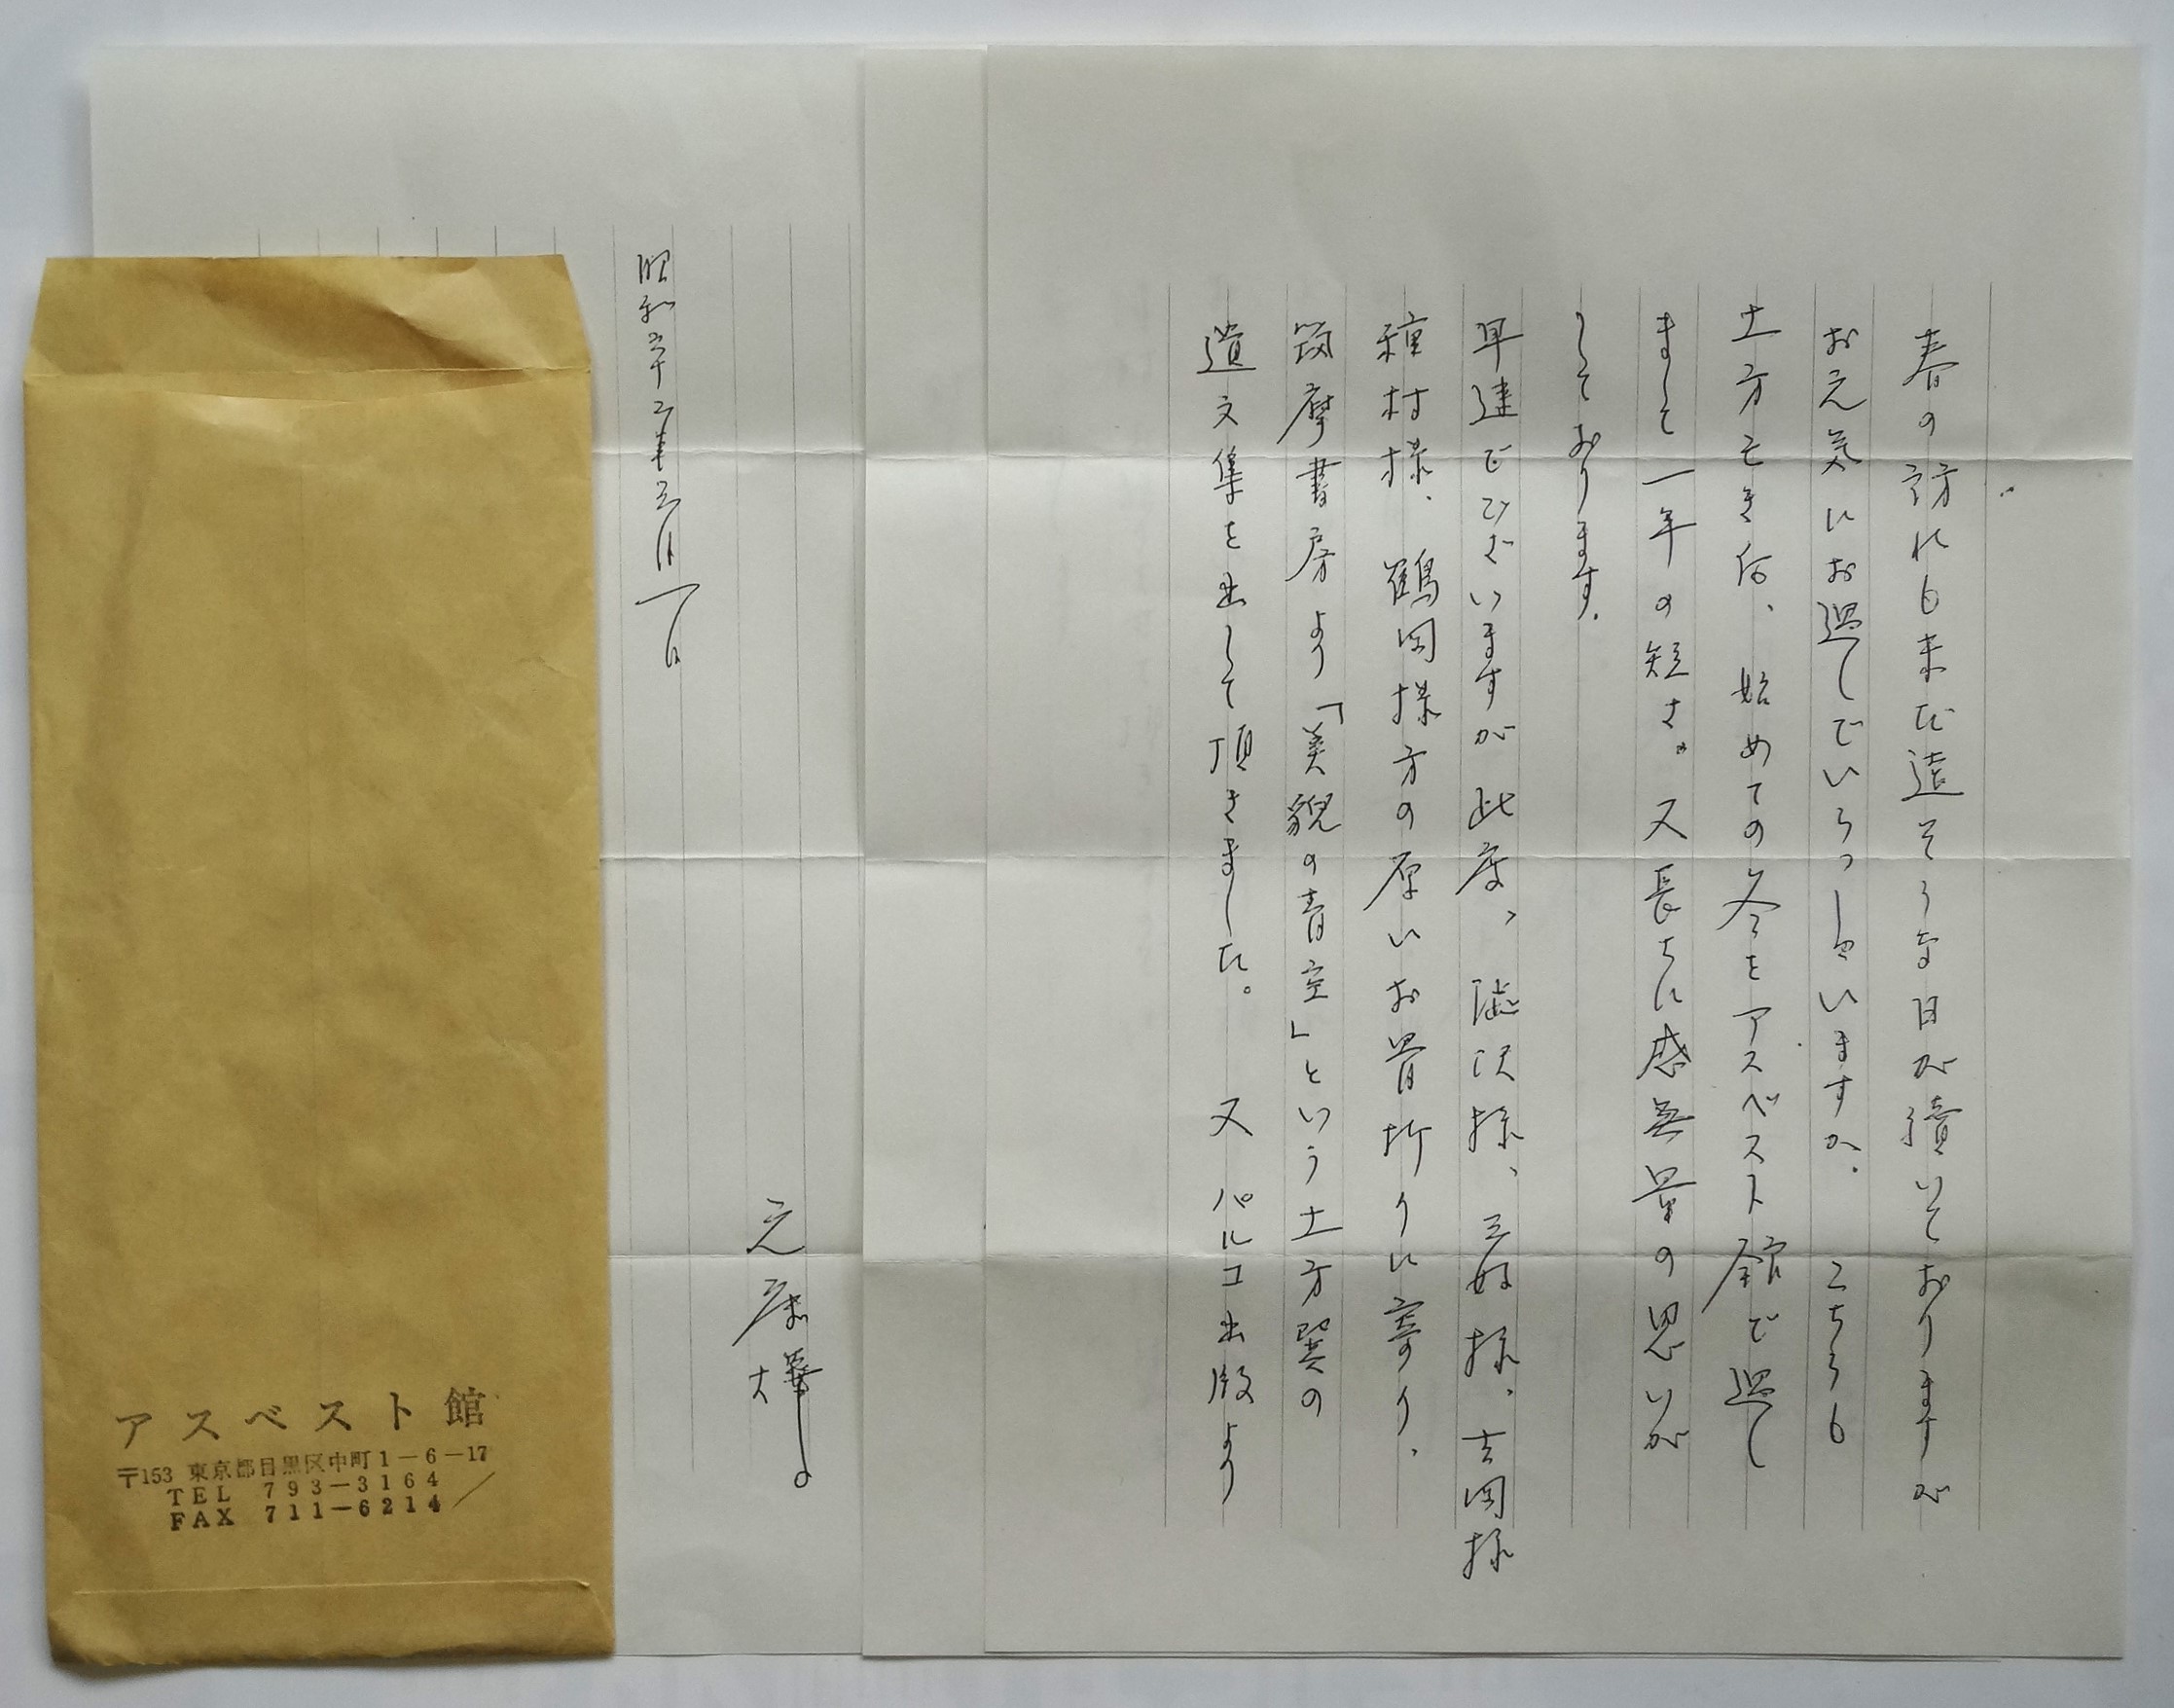 春の訪れも間近そうな日が續いておりますが
お元気にお過しでいらっしゃいますか。 こちらも
土方亡き後、始めての冬をアスベスト館で過し
まして一年の短さ。又長さに感無量の思いが
しております。
早速でございますが此度、澁沢様、三好様、吉岡様
種村様、鶴岡様方の厚いお骨折りに寄り、
筑摩書房より「美貌の青空」という土方巽の
遺文集を出して頂きました。 又パルコ出版より
昭和六十二年三月一日
元藤燁
アスベスト館
〒153 東京都目黒区中町1-6-17
TEL 793-3164
FAX 711-6214